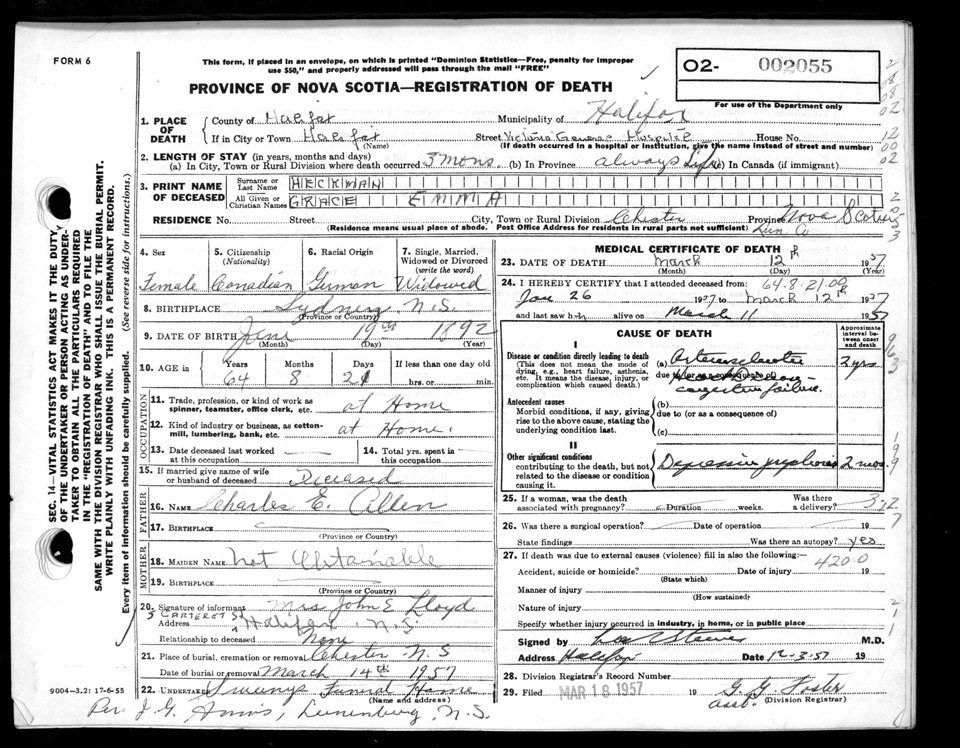 FORM 6
This form, if placed in an envelope, on which is printed "Dominion Statistics—Free, penalty for improper
use $50," and properly addressed will pass through the mail "FREE"
PROVINCE OF NOVA SCOTIA—REGISTRATION OF DEATH
02- 002055
For use of the Department only
1. PLACE OF DEATH
County of Halifax Municipality of Halifax
If in City or Town Halifax Street Victoria General Hospital House No.
(Name) (If death occurred in a hospital or institution, give the name instead of street and number)
2. LENGTH OF STAY (in years, months and days)
(a) In City, Town or Rural Division where death occurred 3 mons. (b) In Province always Life (c) In Canada (if immigrant)
3. PRINT NAME OF DECEASED
Surname or Last Name HECKMAN
All Given or Christian Names GRACE EMMA
RESIDENCE No. Street City, Town or Rural Division Chester Province Nova Scotia
(Residence means usual place of abode. Post Office Address for residents in rural parts not sufficient) Lun. Co
4. Sex 5. Citizenship (Nationality) 6. Racial Origin 7. Single, Married, Widowed or Divorced (write the word)
Female Canadian German Widowed
8. BIRTHPLACE Sydney, N.S.
(Province or Country)
9. DATE OF BIRTH June 19th 1892
(Month) (Day) (Year)
10. AGE in Years Months Days If less than one day old
64 8 21 hrs. or min.
OCCUPATION
11. Trade, profession, or kind of work as spinner, teamster, office clerk, etc. at Home
12. Kind of industry or business, as cotton-mill, lumbering, bank, etc. at Home.
13. Date deceased last worked at this occupation 14. Total yrs. spent in this occupation
15. If married give name of wife or husband of deceased Deceased
FATHER
16. NAME Charles E. Allen
17. BIRTHPLACE
(Province or Country)
MOTHER
18. MAIDEN NAME Not Obtainable
19. BIRTHPLACE
(Province or Country)
20. Signature of informant Mrs John E Lloyd
Address 3 CARTERET ST Halifax N.S.
Relationship to deceased None
21. Place of burial, cremation or removal Chester N.S
Date of burial or removal March 14th 1957
22. UNDERTAKER Funeral Home
(Name and address)
9004—3.2: 17-6-55
Per. J. G. Lunenburg, N.S.
SEC. 14—VITAL STATISTICS ACT MAKES IT THE DUTY
OF THE UNDERTAKER OR PERSON ACTING AS UNDER-
TAKER TO OBTAIN ALL THE PARTICULARS REQUIRED
IN THE "REGISTRATION OF DEATH" AND TO FILE THE
SAME WITH THE DIVISION REGISTRAR WHO SHALL ISSUE THE BURIAL PERMIT.
WRITE PLAINLY WITH UNFADING INK. THIS IS A PERMANENT RECORD.
Every item of information should be carefully supplied. (See reverse side for instructions.)
MEDICAL CERTIFICATE OF DEATH
23. DATE OF DEATH March 12th 1957
(Month) (Day) (Year)
24. I HEREBY CERTIFY that I attended deceased from: 64-8-21-09
Jan 26 1957 to March 12th 1957
and last saw h alive on March 11 1957
CAUSE OF DEATH
Approximate interval between onset and death
I
Disease or condition directly leading to death
(This does not mean the mode of dying, e.g., heart failure, asthenia, etc. It means the disease, injury, or complication which caused death.)
(a) 2 yrs.
due to congestive failure.
Antecedent causes
Morbid conditions, if any, giving rise to the above cause, stating the underlying condition last.
(b)
due to (or as a consequence of)
(c)
II
Other significant conditions
contributing to the death, but not related to the disease or condition causing it.
Depressive psychosis 2 mos.
25. If a woman, was the death associated with pregnancy? Duration weeks. Was there a delivery?
26. Was there a surgical operation? Date of operation 19
State findings Was there an autopsy? yes
27. If death was due to external causes (violence) fill in also the following:—
4200
Accident, suicide or homicide? Date of injury 19
(State which)
Manner of injury
(How sustained)
Nature of injury
Specify whether injury occurred in industry, in home, or in public place
Signed by M.D.
Address Halifax Date 12-3-57 19
28. Division Registrar's Record Number
29. Filed MAR 18 1957 19 G. G. Foster
(Division Registrar)